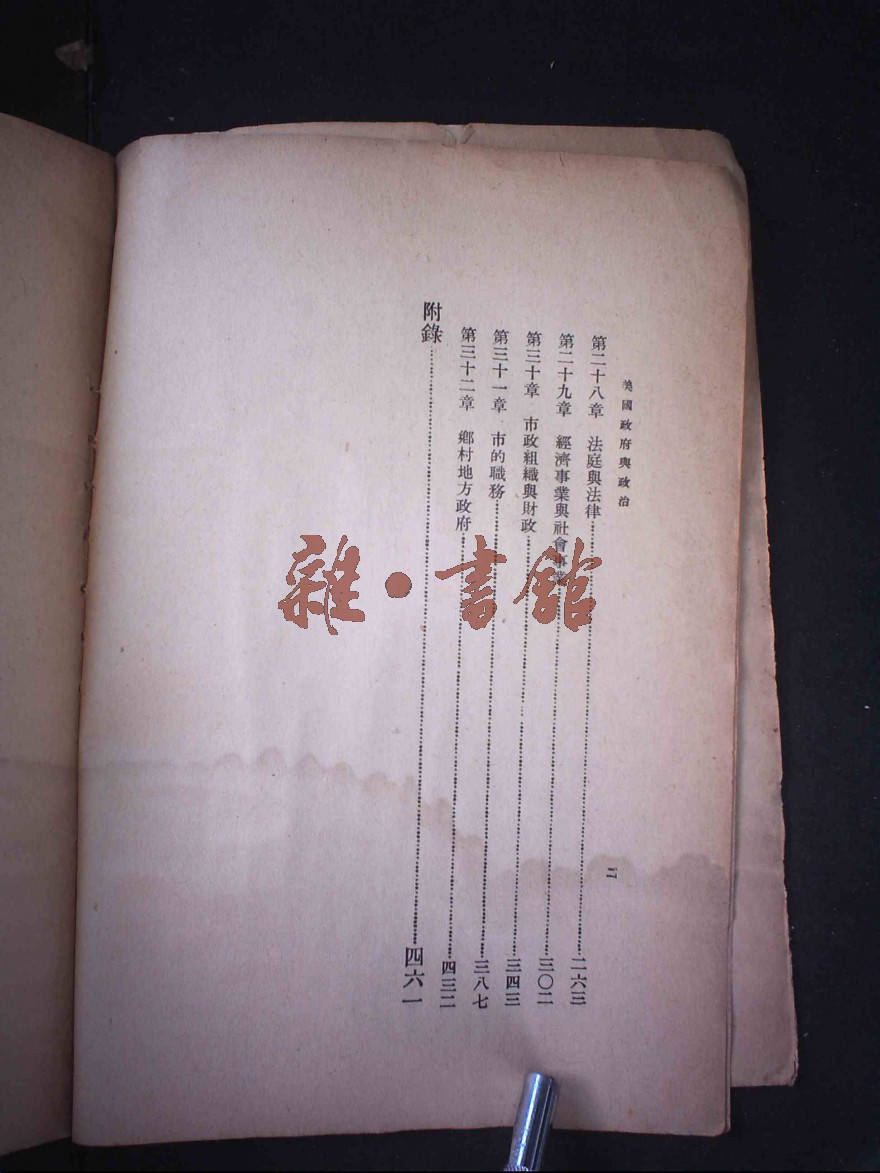 美國政府與政治
二
第二十八章 法庭與法律……二六三
第二十九章 經濟事業與社會事業……三〇二
第三十章 市政組織與財政……三四三
第三十一章 市的職務……三八七
第三十二章 鄉村地方政府……四三二
附錄……四六一
雜·書館